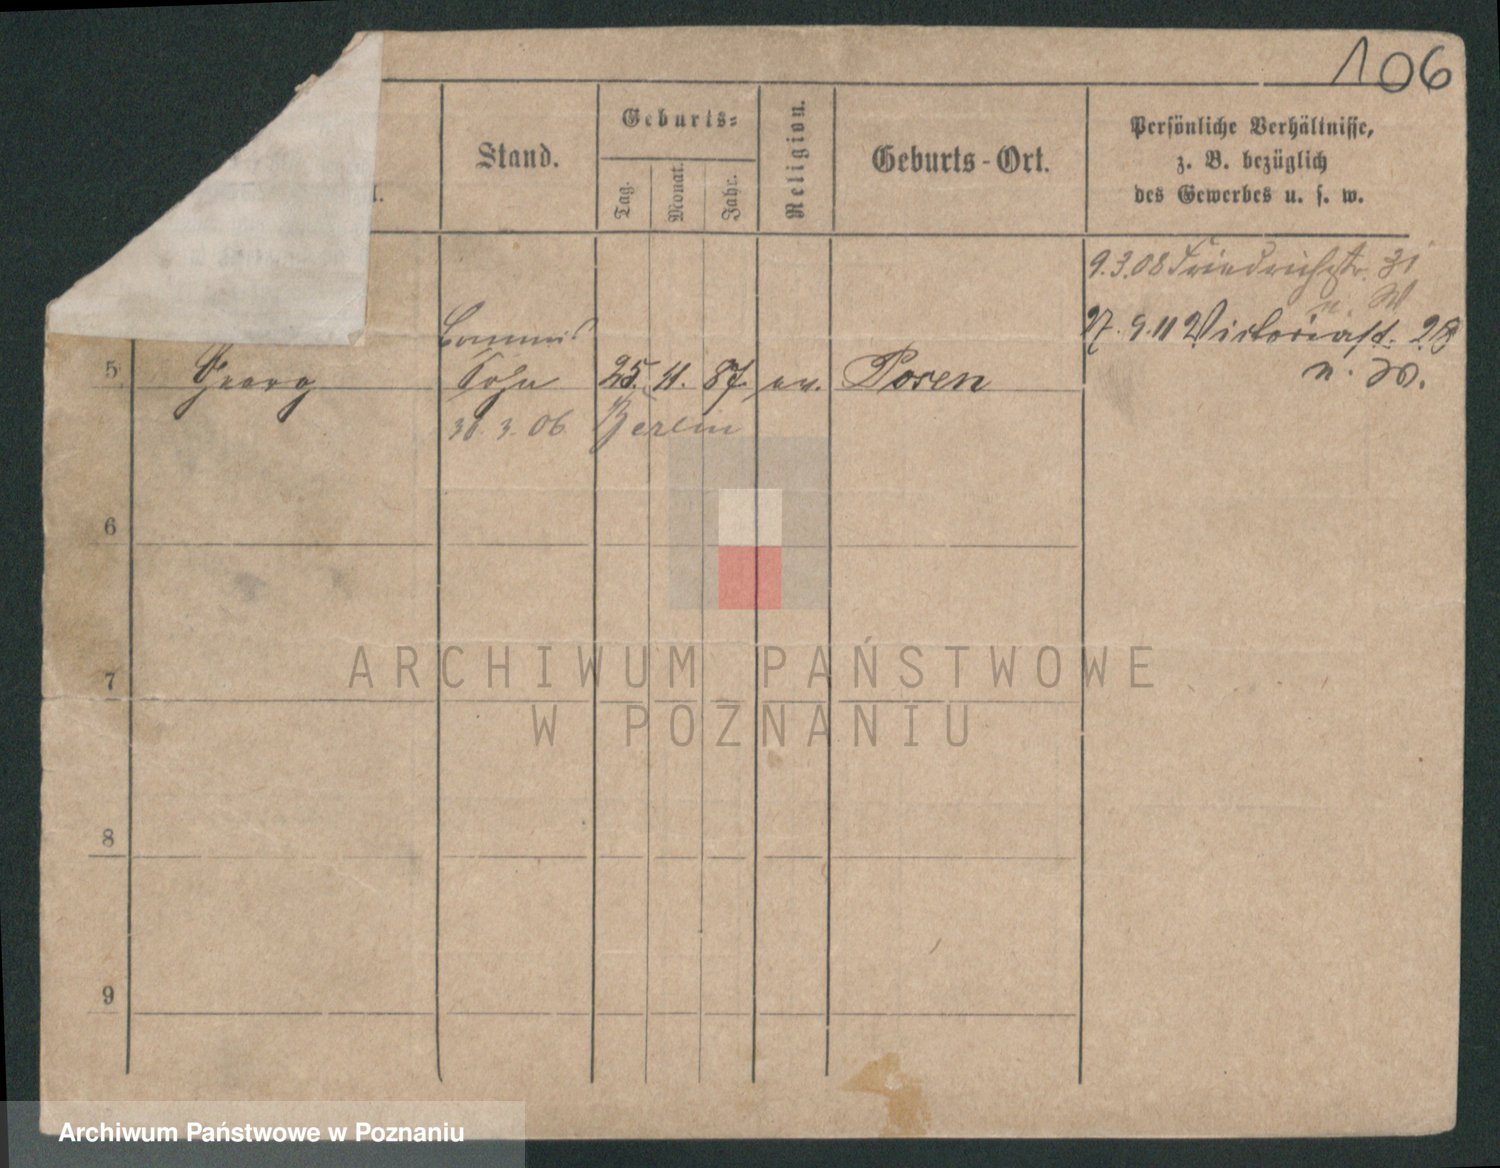 106
Stand.
Geburts-
Tag.
Monat.
Jahr.
Religion.
Geburts-Ort.
Persönliche Verhältnisse,
z. B. bezüglich
des Gewerbes u. s. w.
9.3.08 Friedrichstr. 31
n. W
27. 9. 11 Victoriast. 28
n. W.
Commis
5 Georg Sohn 25. 11. 87. ev. Posen
30. 3. 06 Berlin
6
7
8
9
ARCHIWUM PAŃSTWOWE
W POZNANIU
Archiwum Państwowe w Poznaniu